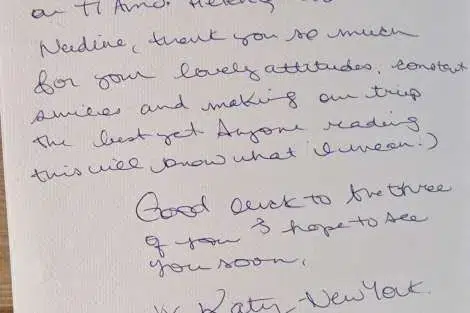 on TI Amo. Helena,
Nadine, thank you so much
for your lovely attitudes, constant
smiles and making our trip
the best yet Anyone reading
this will know what I mean:)
Good luck to the three
of you & hope to see
you soon,
Katy - New York.